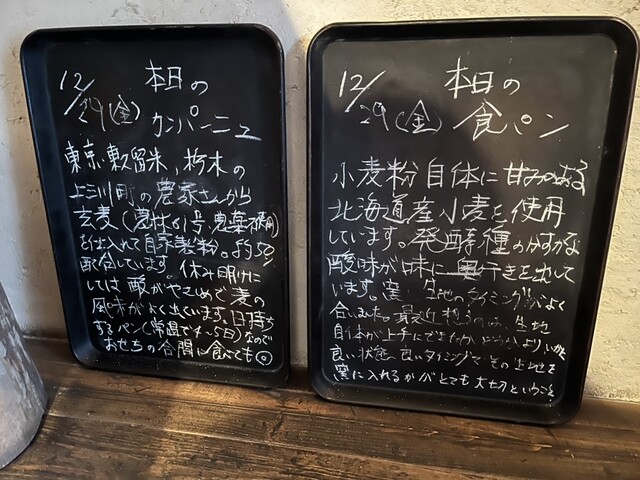 12/29(金) 本日の
カンパーニュ
東京東久留米、栃木の
上三川町の農家さんから
玄麦(農林61号、農薬不使用)
を仕入れて自家製粉。約50%
配合しています。休み明けに
しては酸がやさしめで麦の
風味がよく出ています。日持ち
するパン(常温で4~5日)なので
おせちの合間に食べても◎
12/29(金) 本日の
食パン
小麦粉自体に甘みのある
北海道産小麦を使用
しています。発酵種のかすかな
酸味が味に奥行きを出して
います。窯 生地のタイミングがよく
合いました。最近想うのは、生地
自体が上手にできたかどうかより、いかに
良い状態、良いタイミングで、その生地を
窯に入れるかがとても大切ということ